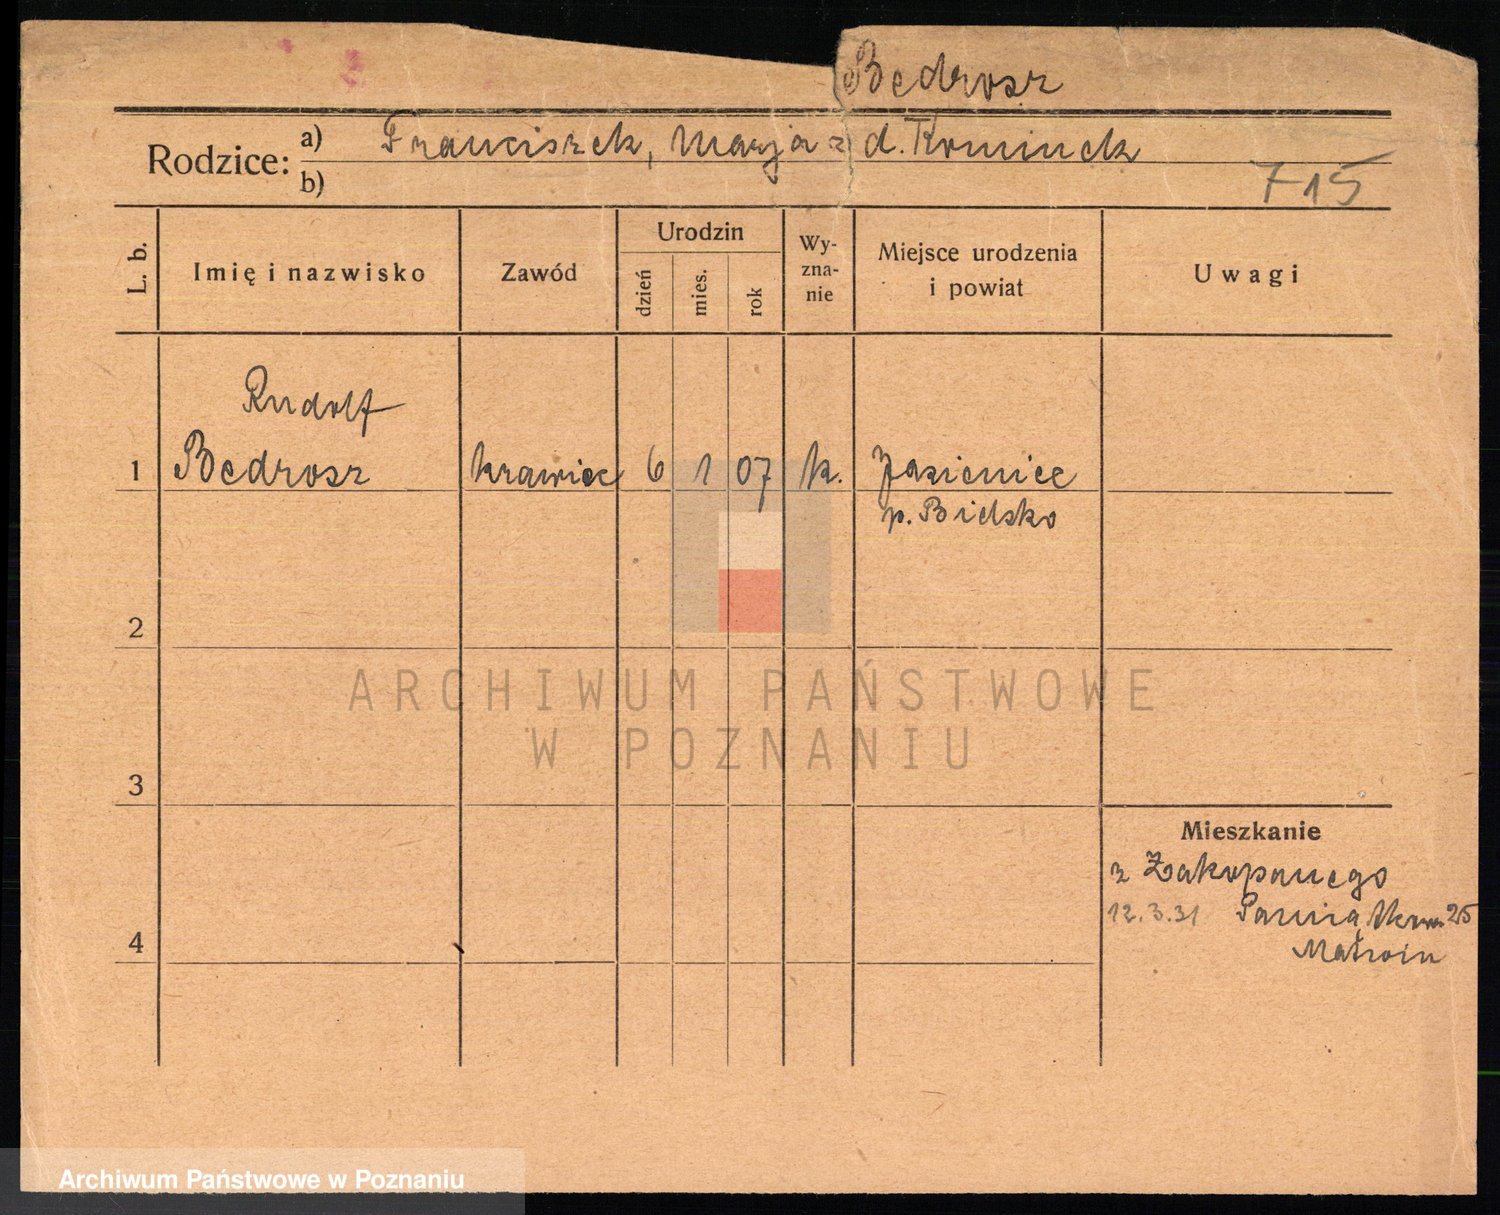 Bedrosz
Rodzice: a) Franciszek, Marja z d. Kominek
b)
715
L. b.
Imię i nazwisko
Zawód
Urodzin
dzień
mies.
rok
Wy-
zna-
nie
Miejsce urodzenia
i powiat
Uwagi
Rudolf
1 Bedrosz krawiec 6 1 07 k. Jasienice
p. Bielsko
2
3
4
Mieszkanie
z Zakopanego
12.3.31 25
ARCHIWUM PAŃSTWOWE
W POZNANIU
Archiwum Państwowe w Poznaniu